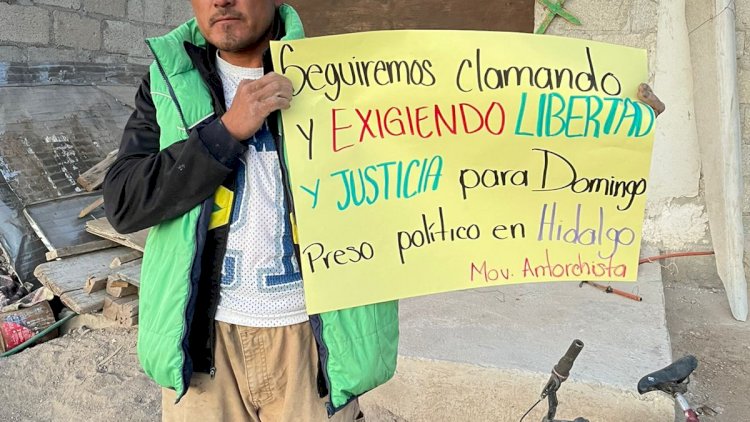 Seguiremos clamando
y EXIGIENDO LIBERTAD
y JUSTICIA para Domingo
Preso político en Hidalgo
Mov. Antorchista